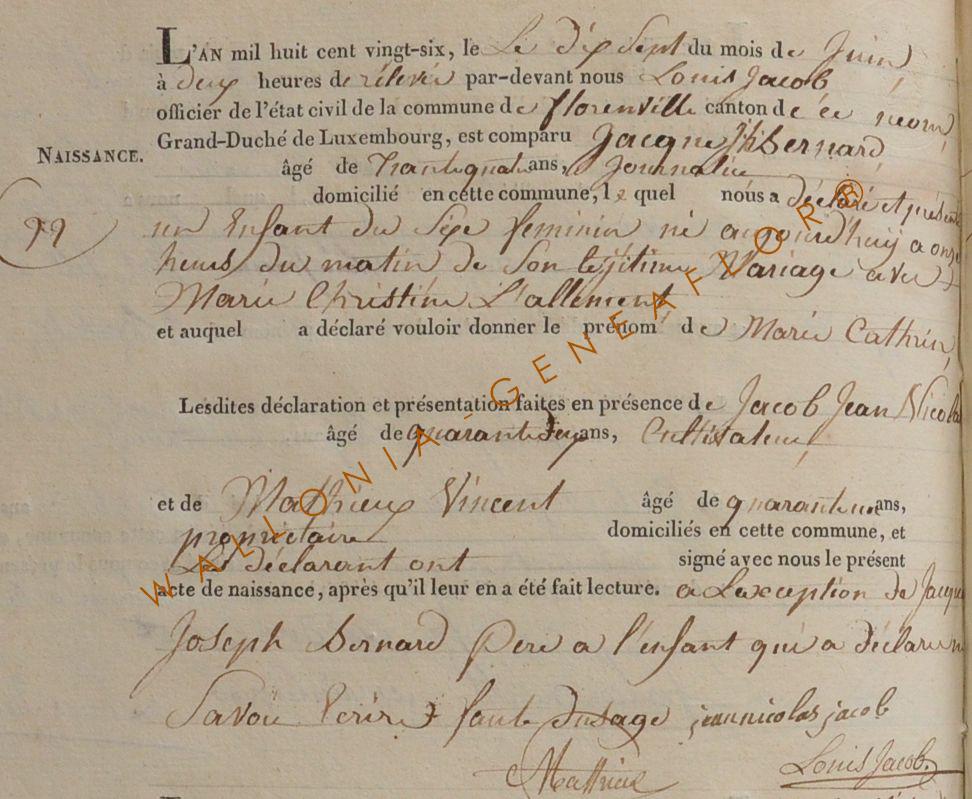 L'AN mil huit cent vingt-six, le Le dix Sept du mois de Juin
à deux heures de rélevée par-devant nous Louis Jacob
officier de l'état civil de la commune de florenville canton de ce nom
Grand-Duché de Luxembourg, est comparu Jacque Jh Bernard
NAISSANCE.
âgé de trante quatre ans, Journalier
domicilié en cette commune, le quel nous a déclaré et présenté
99
un Enfant du Sexe feminin né aujourd'huÿ a onze
heurs du matin de Son Légitime Mariage avec
Marie Christine L'allement
et auquel a déclaré vouloir donner le prénom de Marie Cathrine
Lesdites déclaration et présentation faites en présence de Jacob Jean Nicolas
âgé de quarante deux ans, Cultivateur
et de Mathieux Vincent âgé de quarante ans,
propriétaire domiciliés en cette commune, et
Les déclarant ont signé avec nous le présent
acte de naissance, après qu'il leur en a été fait lecture. a Lexception de Jacque
Joseph Bernard Pere a l'enfant qui a déclaré ne
Savoir Ecrire faute dusage jean nicolas jacob
Mathieu Louis Jacob.
WALLONIA-GENEAFLOR®